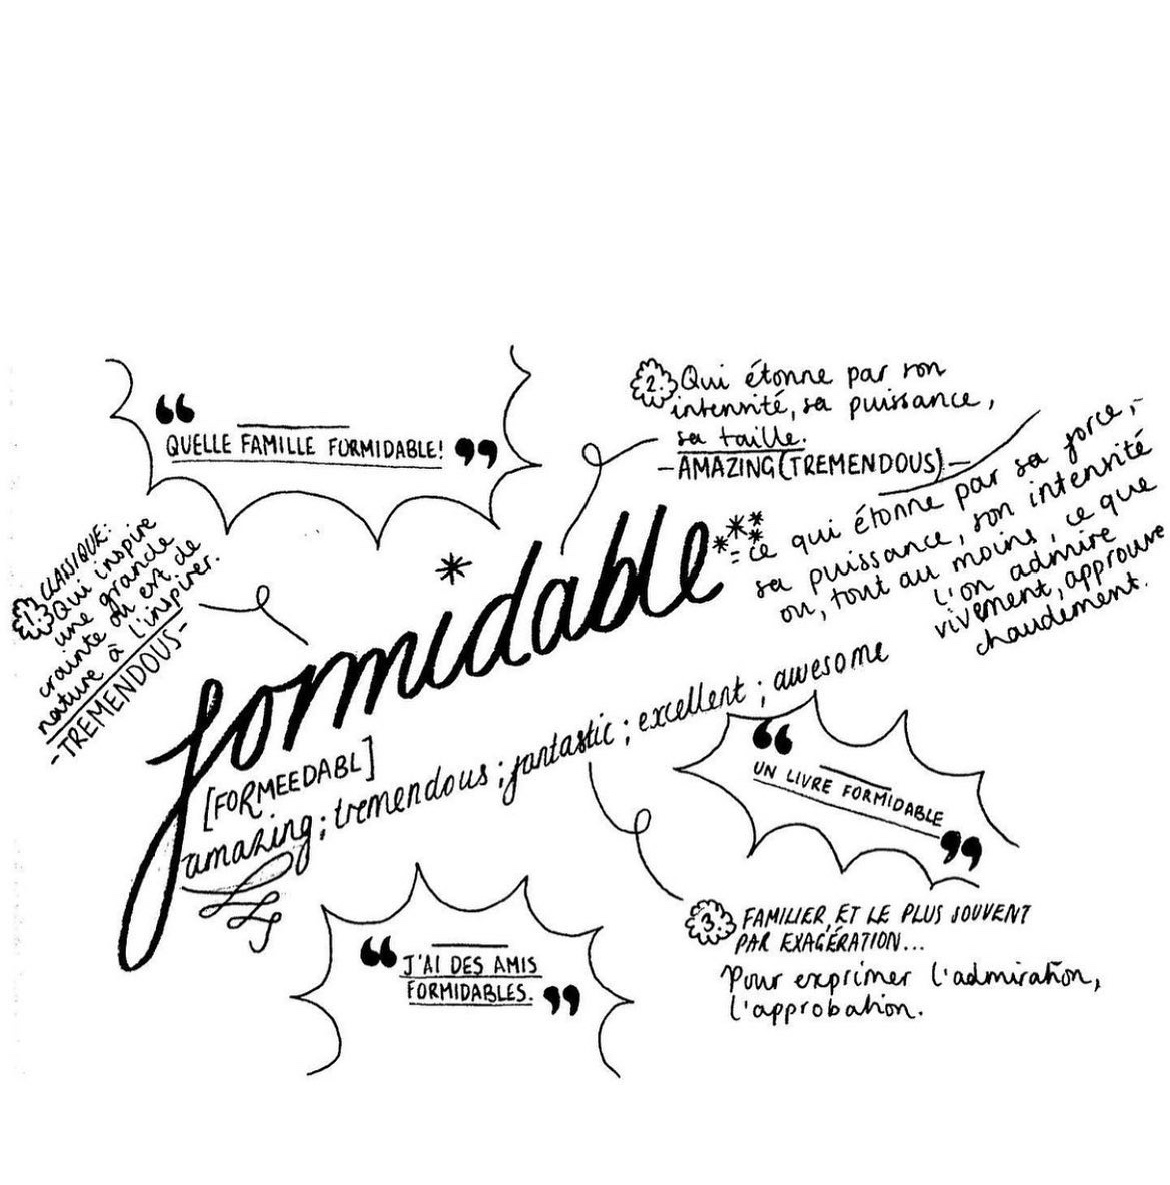 “
QUELLE FAMILLE FORMIDABLE! ”
2. Qui étonne par son
intensité, sa puissance,
sa taille.
-AMAZING (TREMENDOUS)-
1. CLASSIQUE:
Qui inspire
une grande
crainte ou est de
nature à l'inspirer.
-TREMENDOUS-
formidable
= ce qui étonne par sa force,
sa puissance, son intensité
ou, tout au moins, ce que
l'on admire
vivement, approuve
chaudement.
[FORMEEDABL]
amazing; tremendous; fantastic; excellent; awesome
“
UN LIVRE FORMIDABLE
”
“ J'AI DES AMIS
FORMIDABLES. ”
3. FAMILIER, ET LE PLUS SOUVENT
PAR EXAGÉRATION...
Pour exprimer l'admiration,
l'approbation.